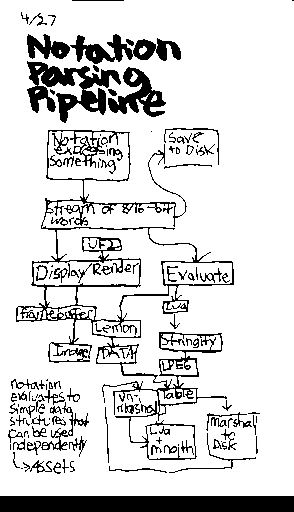 4/27
Notation
Parsing
Pipeline
Notation
expressing
something
Save
to Disk
Stream of 8/16-bit
words
UF2
Display/Render
Evaluate
Framebuffer
Lua
Lemon
Image
DATA
Stringify
LPEG
Un-
marshal
Table
Lua
+
mnolth
Marshall
to
Disk
notation
evaluates to
simple data
structures that
can be used
independently
→Assets